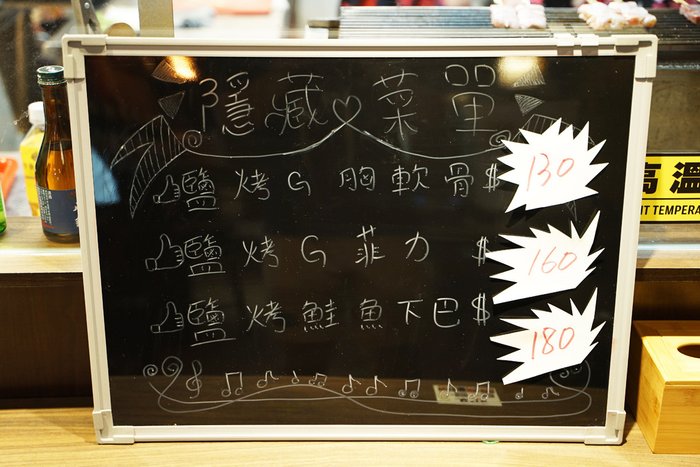 隱藏♡菜單
鹽烤G胸軟骨$130
鹽烤G菲力 $160
鹽烤鮭魚下巴$180
高溫
T TEMPERA